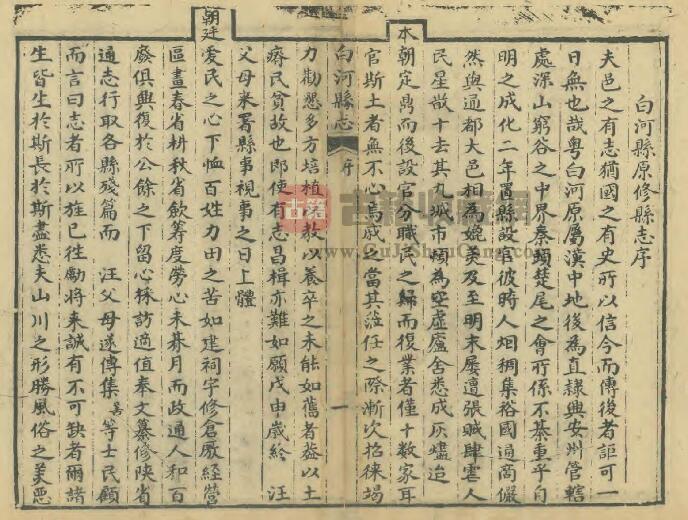 白河縣原修縣志序
夫邑之有志猶國之有史所以信今而傳後者詎可一
日無也哉粵白河原屬漢中地後為直隸興安州管轄
處深山窮谷之中界秦頭楚尾之會所係不綦重乎自
明之成化二年置縣設官彼時人烟稠集裕國通商儼
然與通都大邑相為媲美及至明末屢遭張賊肆虐人
民星散十去其九城市頹為空虛廬舍悉成灰燼迨
本朝定鼎而後設官分職民之歸而復業者僅十數家耳
官斯土者無不心焉戚之當其蒞任之際漸次招徠竭
白河縣志
序
一
力勸懇多方培植教以養卒之未能如舊者蓋以土
瘠民貧故也即使有志昌楫亦難如願戊申歲終 汪
父母來署縣事視事之日上體
朝廷愛民之心下恤百姓力田之苦如建祠宇修倉廒経營
區畫春省耕秋省歛籌度勞心未朞月而政通人和百
廢俱興復於公餘之下留心採訪適值奉文纂修陝省
通志行取各縣殘篇而 汪父母遂傳集 等士民顧
而言曰志者所以旌已徃勵將來誠有不可缺者爾諸
生皆生於斯長於斯盡悉夫山川之形勝風俗之美惡
古籍
古籍收藏网
www.GuJiShouCang.com